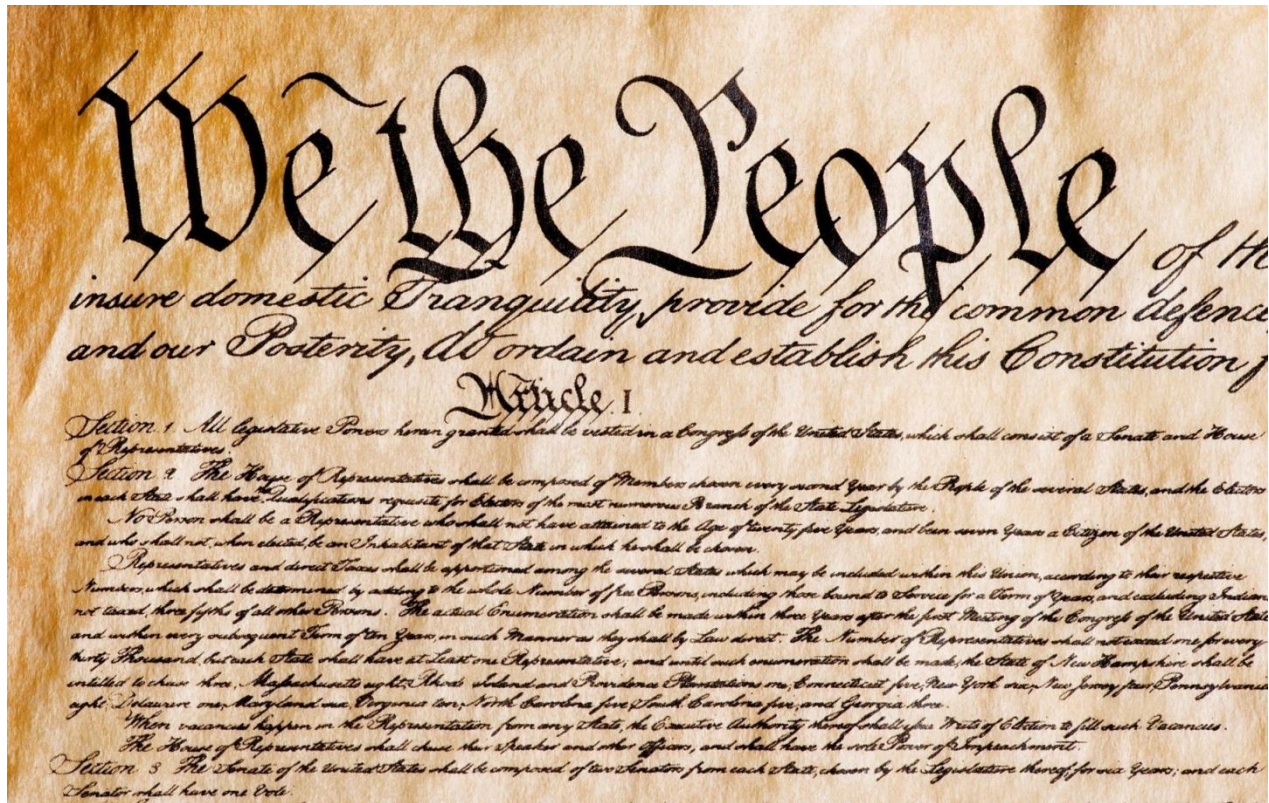 We the People of the
insure domestic Tranquility, provide for the common defence,
and our Posterity, do ordain and establish this Constitution f
Article. I.
Section. 1 All legislative Powers herein granted shall be vested in a Congress of the United States, which shall consist of a Senate and House
of Representatives.
Section. 2 The House of Representatives shall be composed of Members chosen every second Year by the People of the several States, and the Electors
in each State shall have the Qualifications requisite for Electors of the most numerous Branch of the State Legislature.
No Person shall be a Representative who shall not have attained to the Age of twenty five Years, and been seven Years a Citizen of the United States,
and who shall not, when elected, be an Inhabitant of that State in which he shall be chosen.
Representatives and direct Taxes shall be apportioned among the several States which may be included within this Union, according to their respective
Numbers, which shall be determined by adding to the whole Number of free Persons, including those bound to Service for a Term of Years, and excluding Indian
not taxed, three fifths of all other Persons. The actual Enumeration shall be made within three Years after the first Meeting of the Congress of the United State
and within every subsequent Term of ten Years, in such Manner as they shall by Law direct. The Number of Representatives shall not exceed one for every
thirty Thousand, but each State shall have at Least one Representative; and until such enumeration shall be made, the State of New Hampshire shall be
entitled to chuse three, Massachusetts eight, Rhode Island and Providence Plantations one, Connecticut five, New York six, New Jersey four, Pennsylvania
eight, Delaware one, Maryland six, Virginia ten, North Carolina five, South Carolina five, and Georgia three.
When vacancies happen in the Representation from any State, the Executive Authority thereof shall issue Writs of Election to fill such Vacancies.
The House of Representatives shall chuse their Speaker and other Officers; and shall have the sole Power of Impeachment.
Section. 3 The Senate of the United States shall be composed of two Senators from each State, chosen by the Legislature thereof, for six Years; and each
Senator shall have one Vote.